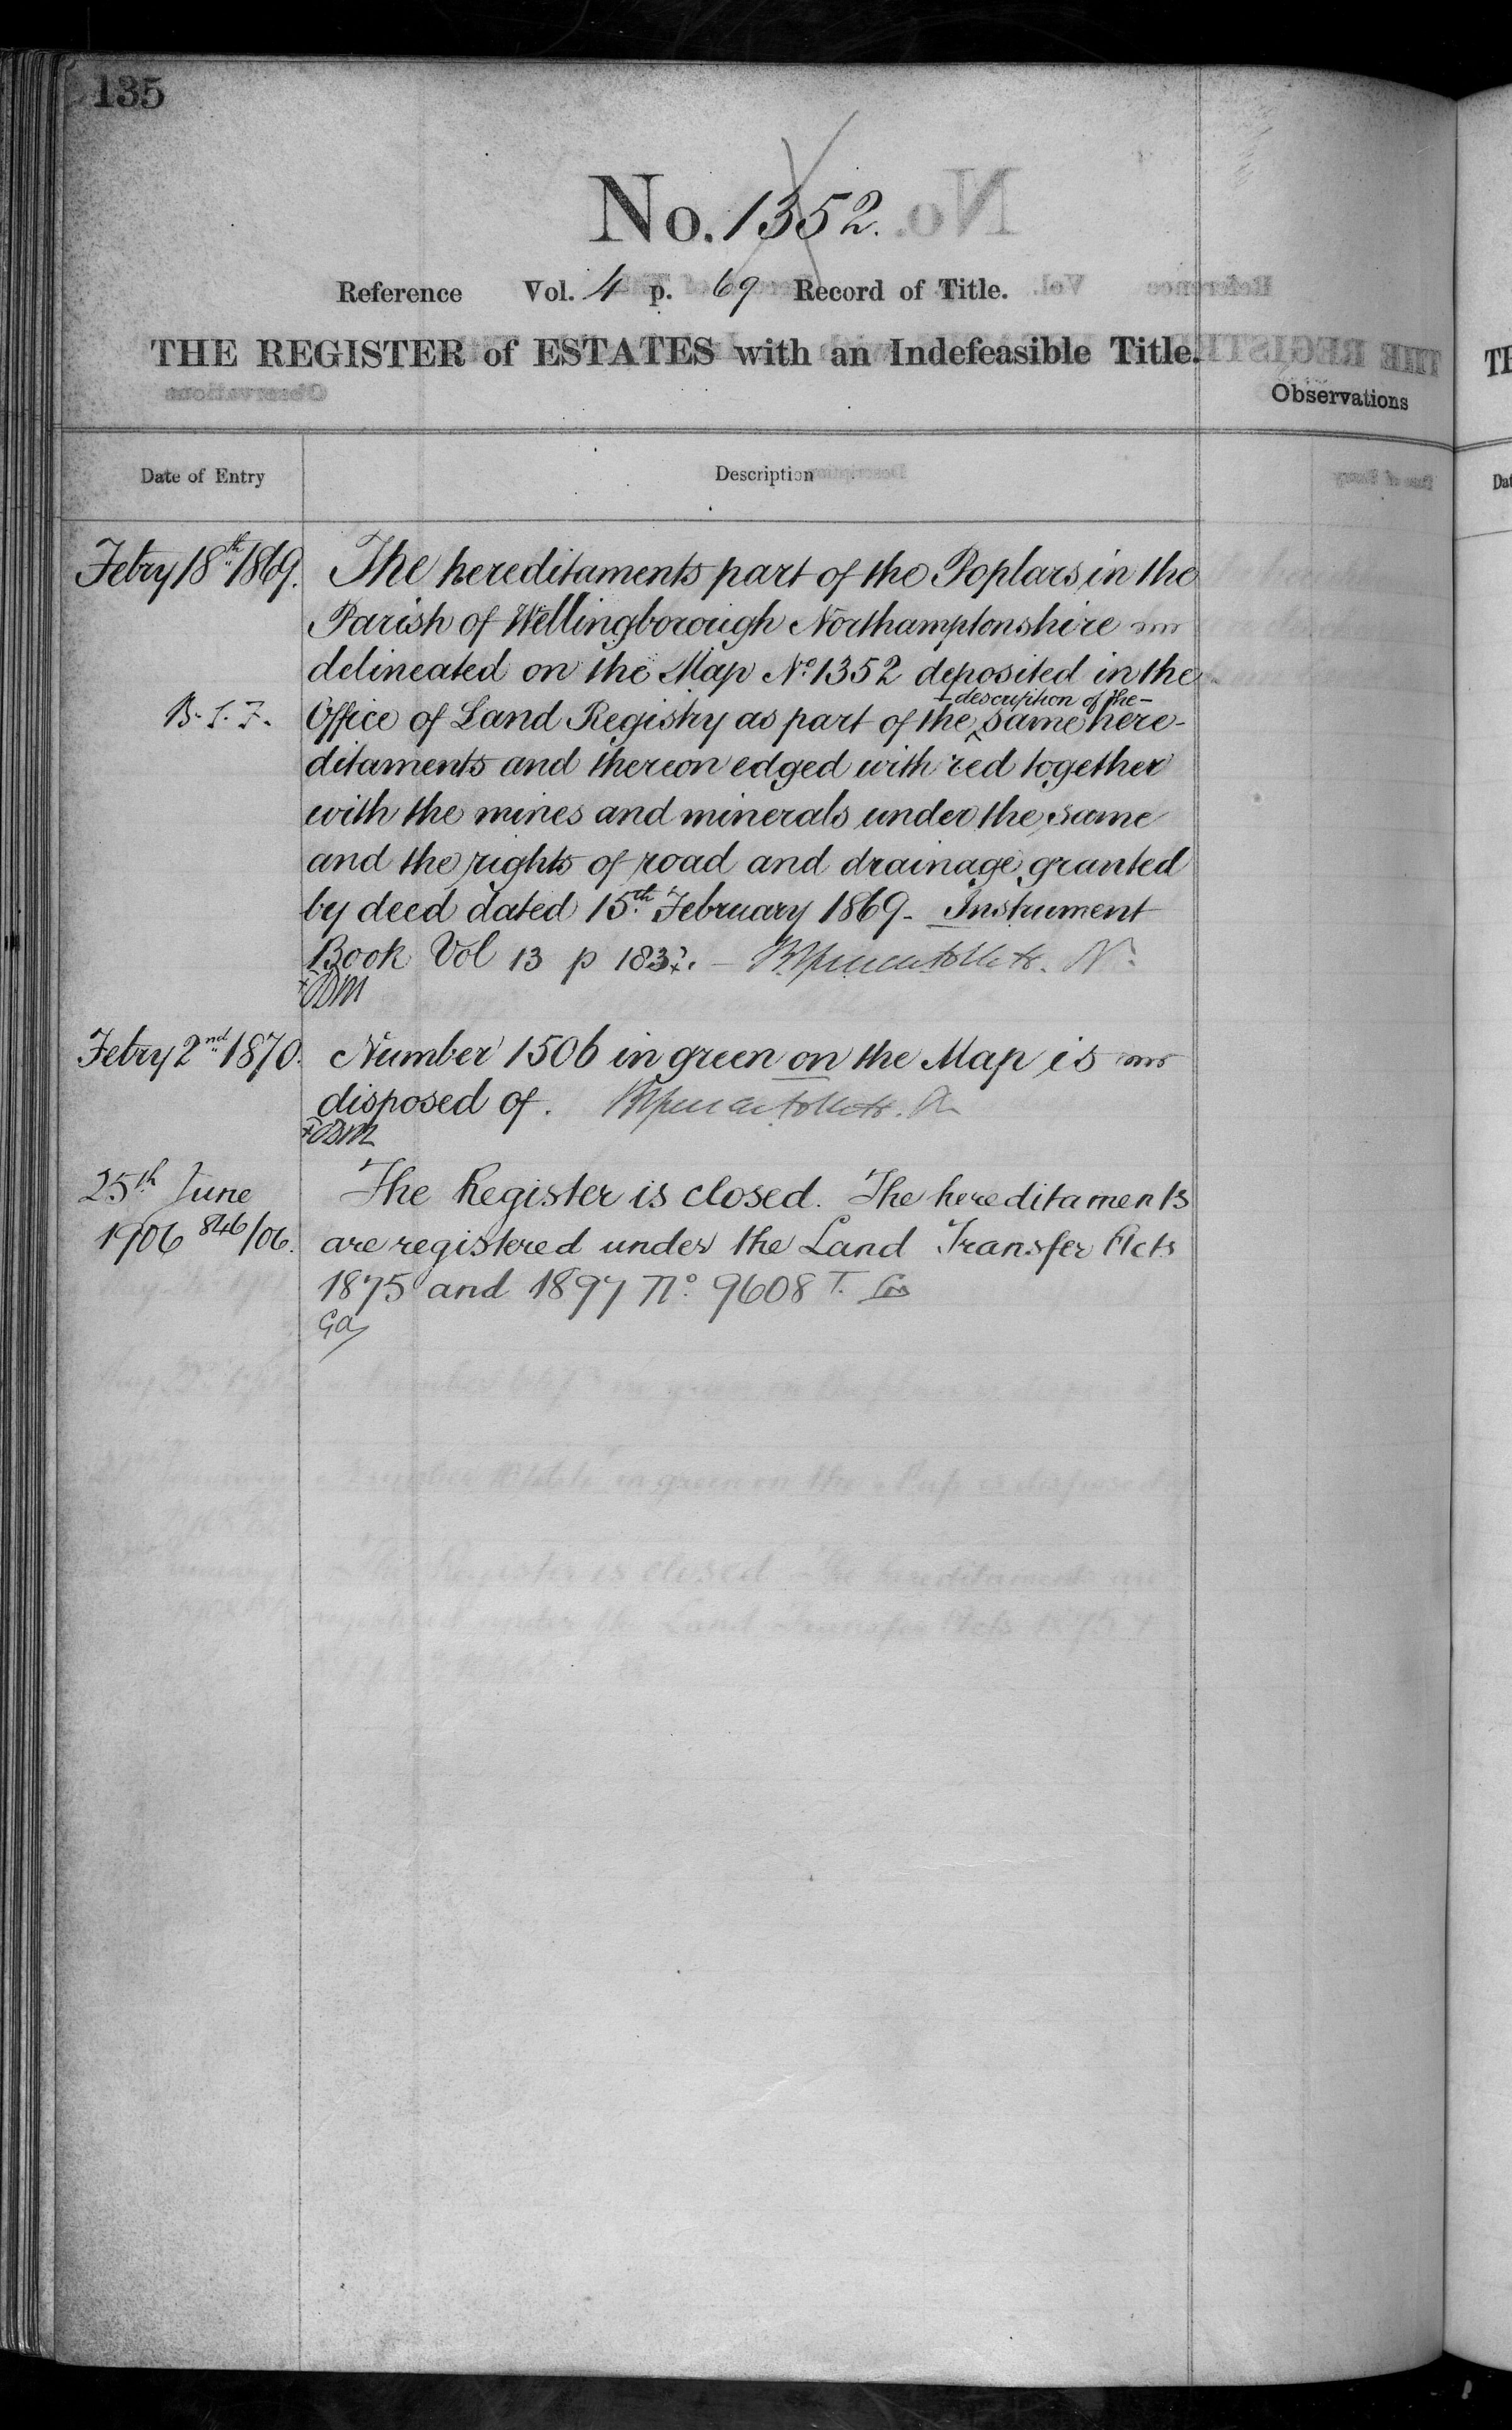 135
No. 1352.
Reference Vol. 4 p. 69 Record of Title.
THE REGISTER of ESTATES with an Indefeasible Title.
Observations
Date of Entry Description
Febry 18th 1869. The hereditaments part of the Poplars in the
Parish of Wellingborough Northamptonshire
delineated on the Map No. 1352 deposited in the
description of the
B. L. F. Office of Land Registry as part of the same here-
ditaments and thereon edged with red together
with the mines and minerals under the same
and the rights of road and drainage granted
by deed dated 15th February 1869. Instrument
Book Vol 13 p 183
Febry 2nd 1870. Number 1506 in green on the Map is
disposed of.
25th June The Register is closed. The hereditaments
1906 846/06. are registered under the Land Transfer Acts
1875 and 1897 No. 9608 T.